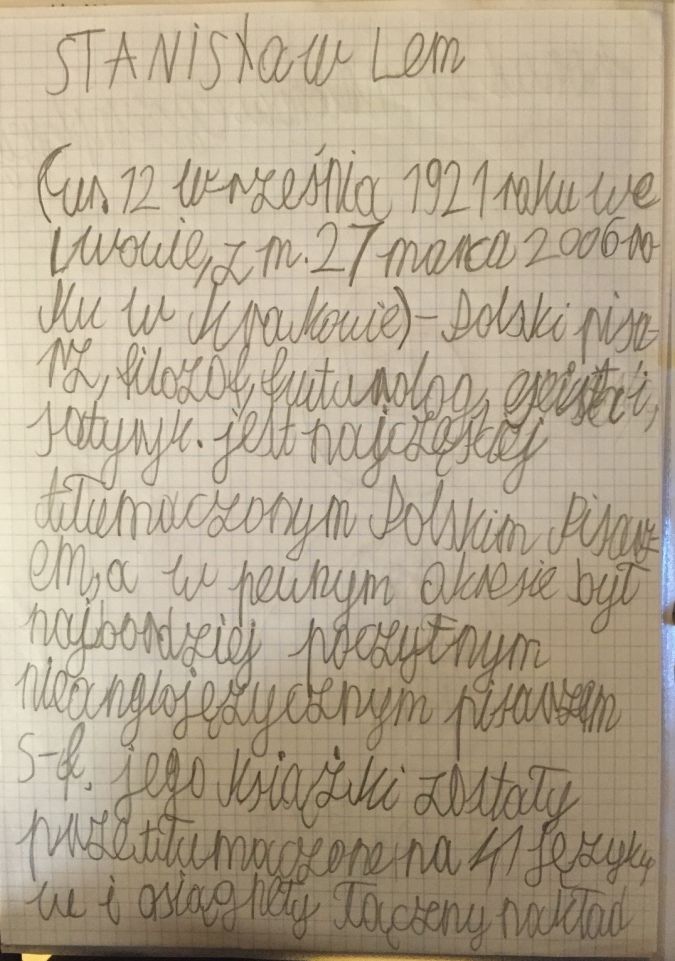 STANISław Lem
(ur. 12 września 1921 roku we
Lwowie, z m. 27 marca 2006 ro-
ku w Krakowie) - Polski pisa-
rz, filozof, futurolog, eseista i,
satyryk. jest najczęściej
tłumaczonym Polskim Pisarz-
em, a w pewnym okresie był
najbardziej poczytnym
nieanglojęzycznym pisarzem
S-f. jego książki zostały
przetłumaczone na 41 języków
w i osiągnęły łączny nakład